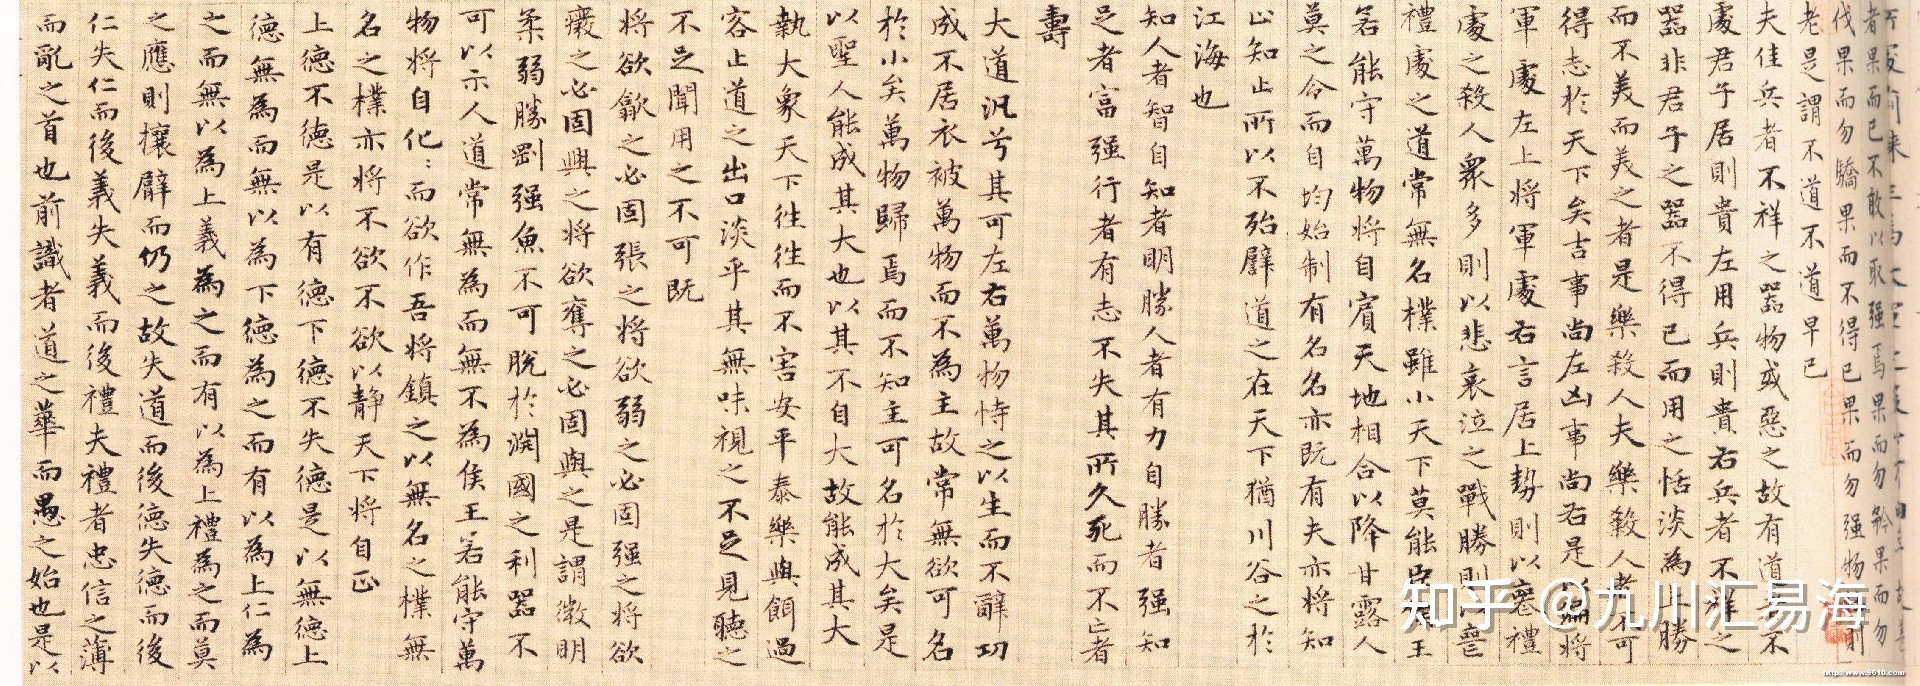 者果而已不敢以取强焉果而勿矜果而勿
伐果而勿驕果而不得已果而勿强物則
老是謂不道不道早已
夫佳兵者不祥之器物或惡之故有道不
處君子居則貴左用兵則貴右兵者不祥之
器非君子之器不得已而用之恬淡為上勝
而不美而美之者是樂殺人夫樂殺人者不可
得志於天下矣吉事尚左凶事尚右是以偏將
軍處左上將軍處右言居上勢則以喪禮
處之殺人衆多則以悲哀泣之戰勝則以喪
禮處之道常無名樸雖小天下莫能臣王
若能守萬物將自賓天地相合以降甘露人
莫之令而自均始制有名名亦既有夫亦將知
止知止所以不殆譬道之在天下猶川谷之於
江海也
知人者智自知者明勝人者有力自勝者强知
足者富强行者有志不失其所久死而不亡者
壽
大道汎兮其可左右萬物恃之以生而不辭功
成不居衣被萬物而不為主故常無欲可名
於小矣萬物歸焉而不知主可名於大矣是
以聖人能成其大也以其不自大故能成其大
執大象天下往往而不害安平泰樂與餌過
客止道之出口淡乎其無味視之不足見聽之
不足聞用之不可既
將欲歙之必固張之將欲弱之必固强之將欲
廢之必固興之將欲奪之必固與之是謂微明
柔弱勝剛强魚不可脫於淵國之利器不
可以示人道常無為而無不為侯王若能守萬
物將自化:而欲作吾將鎮之以無名之樸無
名之樸亦將不欲不欲以靜天下將自正
上德不德是以有德下德不失德是以無德上
德無為而無以為下德為之而有以為上仁為
之而無以為上義為之而有以為上禮為之而莫
之應則攘臂而仍之故失道而後德失德而後
仁失仁而後義失義而後禮夫禮者忠信之薄
而亂之首也前識者道之華而愚之始也是以
知乎 @九川汇易海
http://www.9610.com